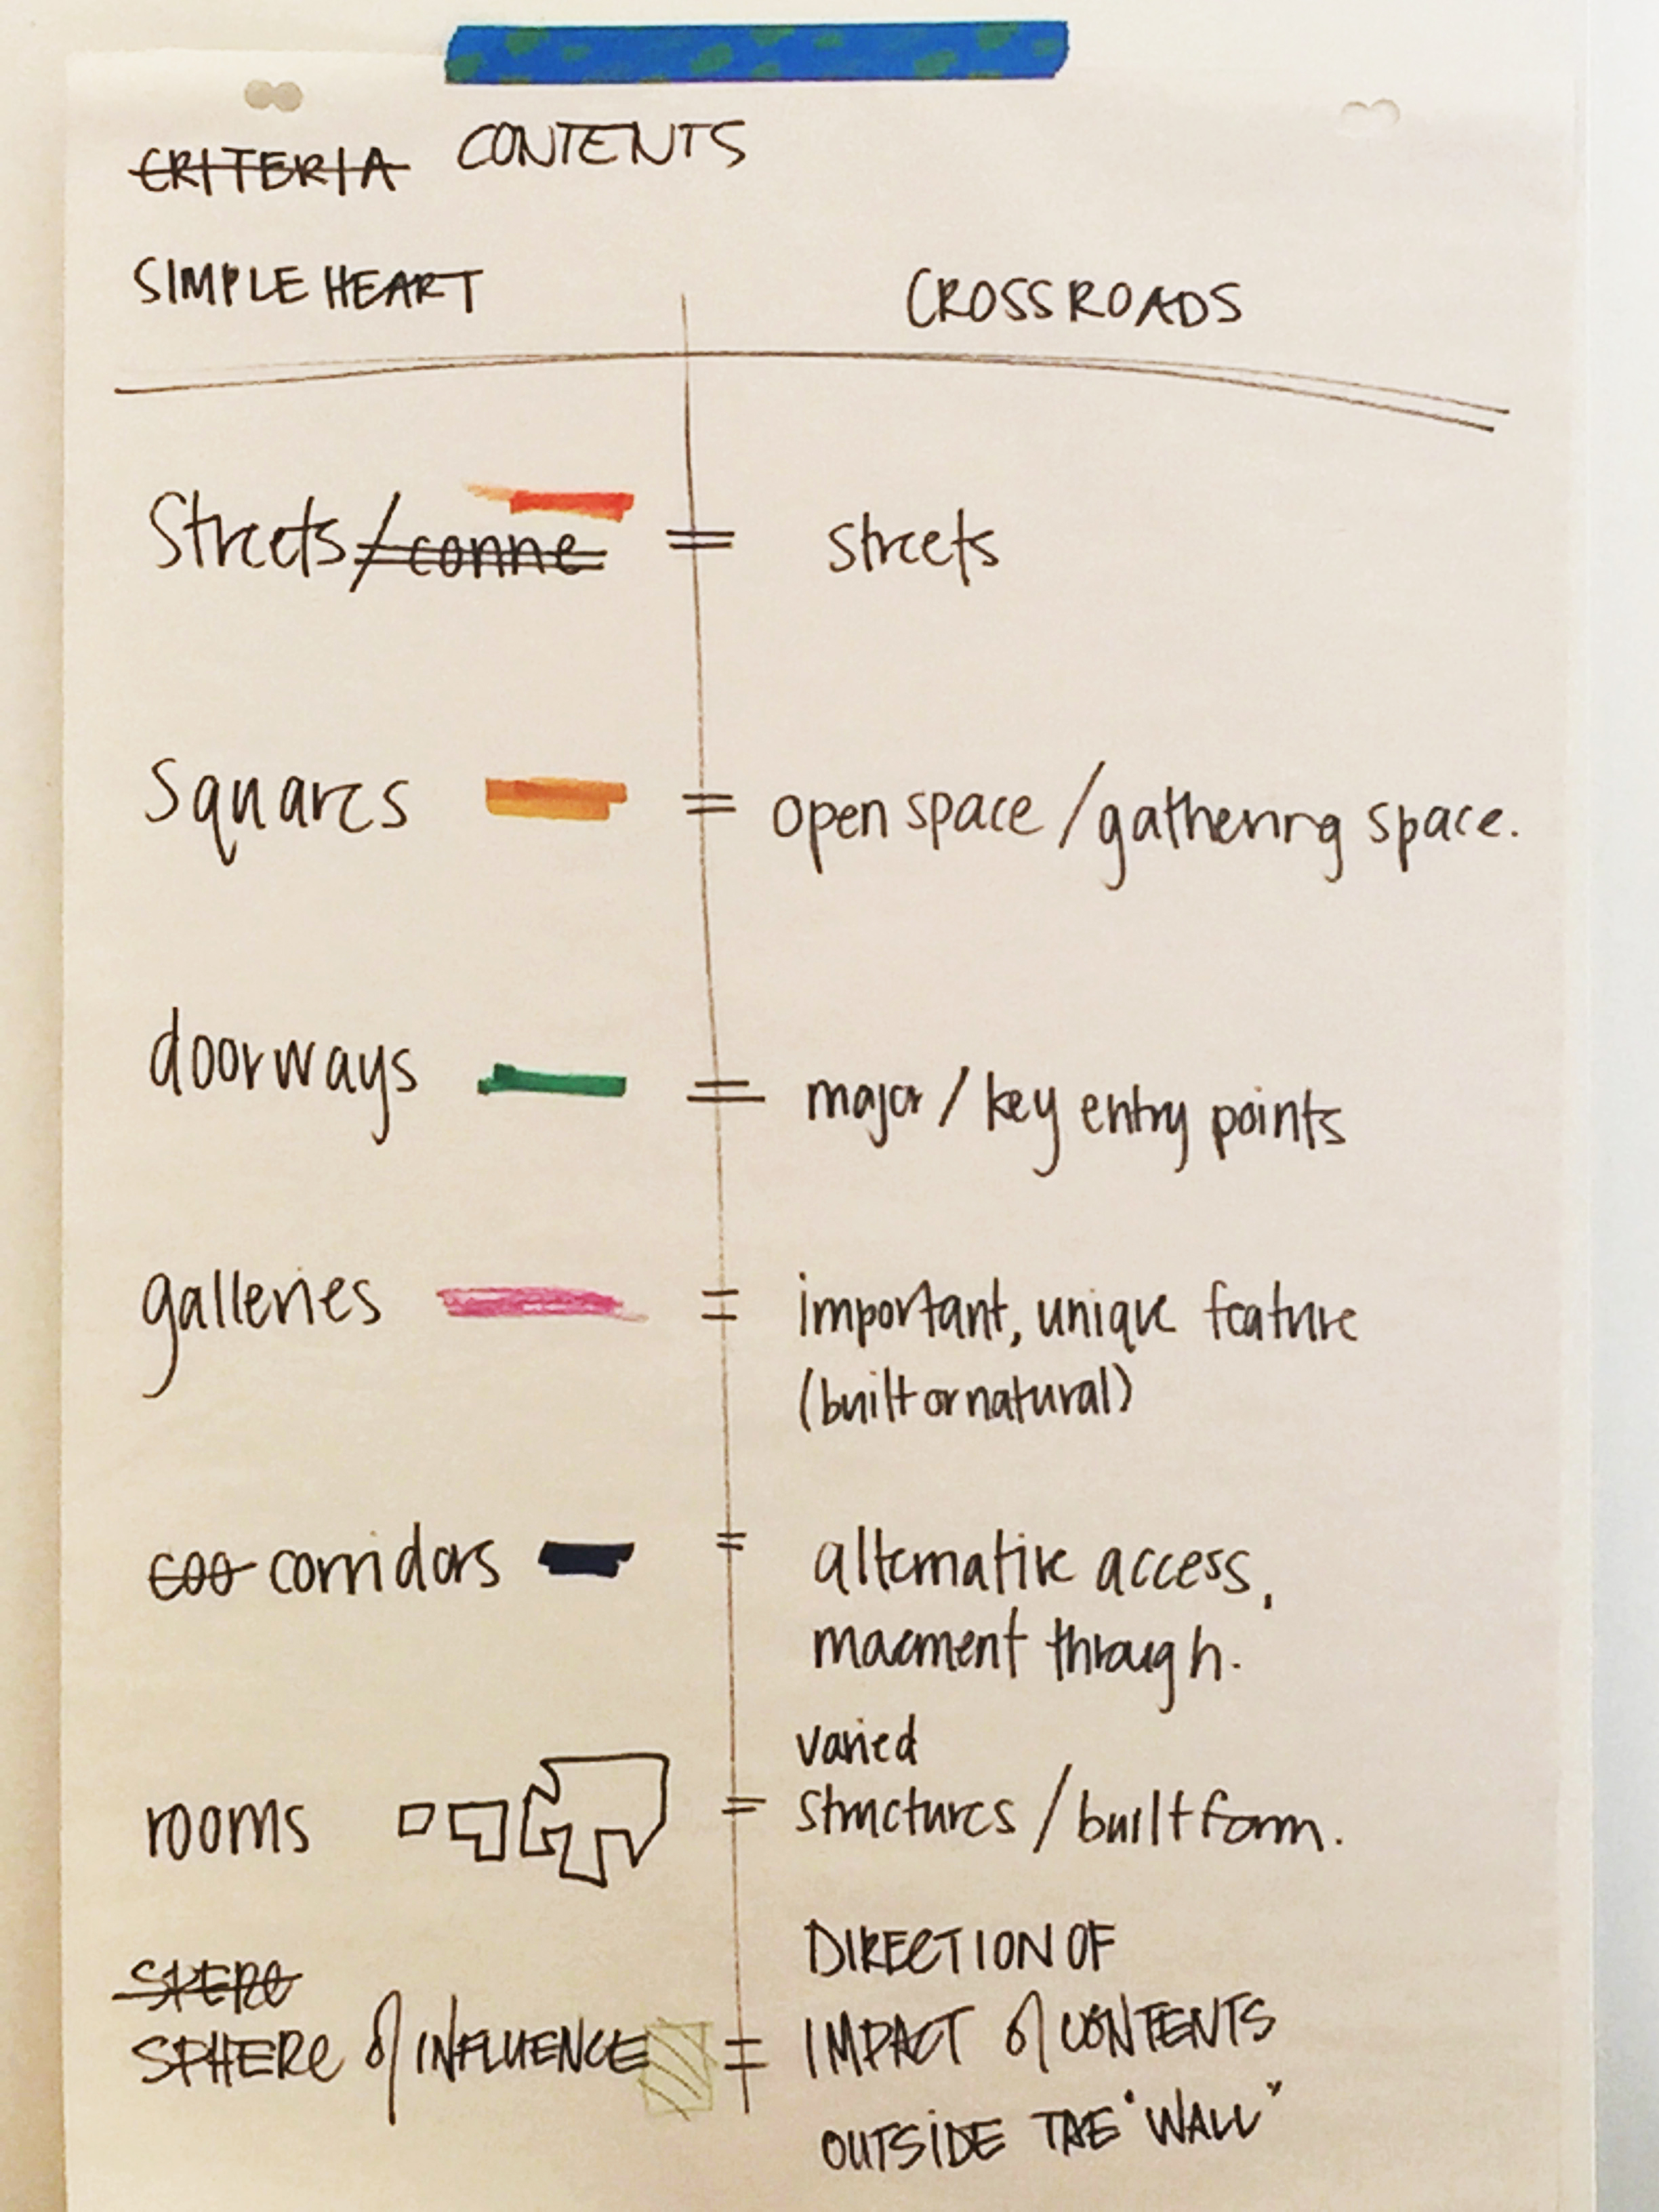 CRITERIA CONTENTS
SIMPLE HEART CROSSROADS
Streets/conne = streets
Squares = open space / gathering space.
doorways = major / key entry points
galleries = important, unique feature
(built or natural)
coo corridors = alternative access,
movement through.
varied
rooms = structures / built form.
SPERE
DIRECTION OF
SPHERE of INFLUENCE = IMPACT of CONTENTS
OUTSIDE THE "WALL"